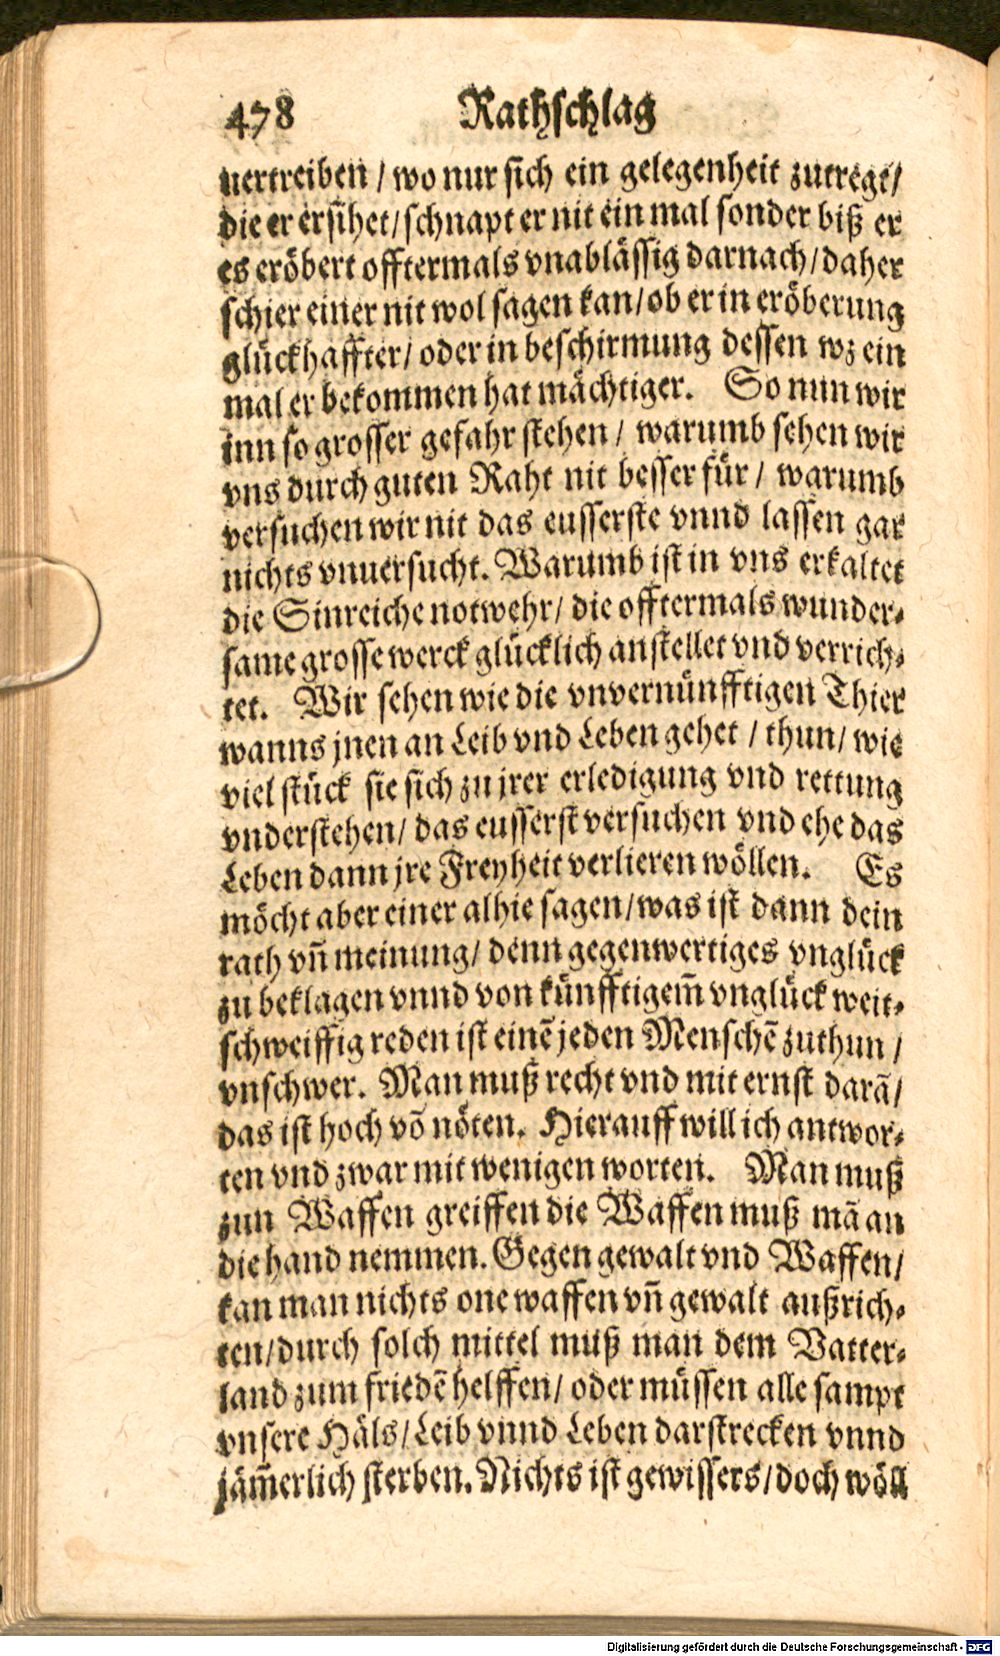 478 Rathschlag
uertreiben / wo nur sich ein gelegenheit zutregt/
die er ersihet/schnapt er nit ein mal sonder biß er
es eröbert offtermals vnablässig darnach/daher
schier einer nit wol sagen kan/ob er in eröberung
glückhaffter/ oder in beschirmung dessen wz ein
mal er bekommen hat mächtiger. So nun wir
inn so grosser gefahr stehen / warumb sehen wir
vns durch guten Raht nit besser für / warumb
versuchen wir nit das eusserste vnnd lassen gar
nichts vnuersucht. Warumb ist in vns erkaltet
die Sinreiche notwehr/ die offtermals wunder-
same grosse werck glücklich anstellet vnd verrich-
tet. Wir sehen wie die vnvernünfftigen Thier
wanns jnen an Leib vnd Leben gehet / thun/ wie
viel stück sie sich zu jrer erledigung vnd rettung
vnderstehen/ das eusserst versuchen vnd ehe das
Leben dann jre Freyheit verlieren wöllen. Es
möcht aber einer alhie sagen/was ist dann dein
rath vñ meinung/ denn gegenwertiges vnglück
zu beklagen vnnd von künfftigem̄ vnglück weit-
schweiffig reden ist einẽ jeden Menschẽ zuthun /
vnschwer. Man muß recht vnd mit ernst darã/
das ist hoch võ nöten. Hierauff will ich antwor-
ten vnd zwar mit wenigen worten. Man muß
zun Waffen greiffen die Waffen muß mã an
die hand nemmen. Gegen gewalt vnd Waffen/
kan man nichts one waffen vñ gewalt außrich-
ten/durch solch mittel muß man dem Vatter-
land zum friedẽ helffen/ oder müssen alle sampt
vnsere Häls/Leib vnnd Leben darstrecken vnnd
jäm̄erlich sterben. Nichts ist gewissers/doch wöll
Digitalisierung gefördert durch die Deutsche Forschungsgemeinschaft - DFG